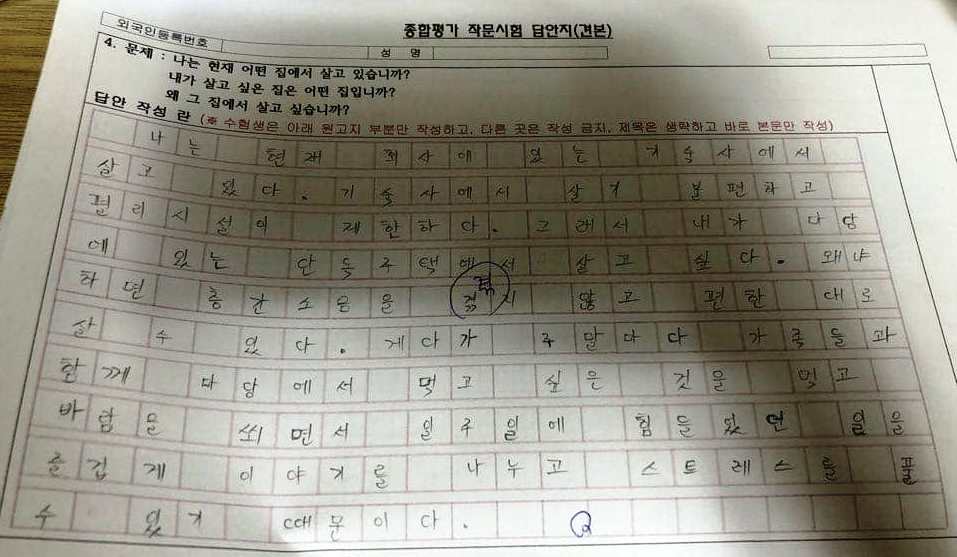 종합평가 작문시험 답안지(견본)
외국인등록번호 성 명
4. 문제 : 나는 현재 어떤 집에서 살고 있습니까?
내가 살고 싶은 집은 어떤 집입니까?
왜 그 집에서 살고 싶습니까?
답안 작성 란 (※ 수험생은 아래 원고지 부분만 작성하고, 다른 곳은 작성 금지, 제목은 생략하고 바로 본문만 작성)
나는 현재 회사에 있는 기숙사에서
살고 있다. 기숙사에서 살기 불편하고
편리시설이 제한하다. 그래서 내가 마당
에 있는 단독주택에서 살고 싶다. 왜냐
하면 층간소음을 겪지 않고 편한 대로
살 수 있다. 게다가 주말마다 가족들과
함께 마당에서 먹고 싶은 것을 먹고
바람을 쐬면서 일주일에 힘들었던 일을
즐겁게 이야기를 나누고 스트레스를 풀
수 있기 때문이다.